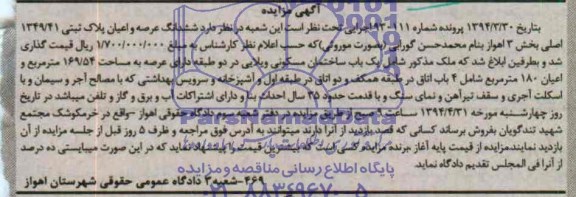 آگهی مزایده
بتاریخ ۱۳۹۴/۳/۳۰ پرونده شماره ۱۱۱ اجرایی تحت نظر است این شعبه در نظر دارد ششدانگ عرصه و اعیان پلاک ثبتی ۱۳۴۹/۴۱
اصلی بخش ۳ اهواز بنام محمدحسن گورابی (بصورت موروثی) که حسب اعلام نظر کارشناس به مبلغ ۱/۷۰۰/۰۰۰/۰۰۰ ریال قیمت گذاری
شد و بطرفین ابلاغ شد که ملک مذکور شامل یک باب ساختمان مسکونی ویلایی در دو طبقه دارای عرصه به مساحت ۱۶۹/۵۴ مترمربع و
اعیان ۱۸۰ مترمربع شامل ۴ باب اتاق در طبقه همکف و دو اتاق در طبقه اول و آشپزخانه و سرویس بهداشتی که با مصالح آجر و سیمان و با
اسکلت آجری و سقف تیرآهن و نمای سنگ و با قدمت حدود ۳۵ سال احداث بنا و دارای اشتراکات آب و برق و گاز و تلفن میباشد در تاریخ
روز چهارشنبه مورخه ۱۳۹۴/۴/۳۱ ساعت صبح از طریق مزایده در دفتر شعبه سوم دادگاه حقوقی اهواز - واقع در خرمکوشک مجتمع
شهید تندگویان بفروش برساند کسانی که قصد بازدید از آنرا دارند میتوانند به آدرس فوق مراجعه و ظرف ۵ روز قبل از جلسه مزایده از آن
بازدید نمایند. مزایده از قیمت پایه آغاز برنده مزایده کسی است که بیشترین قیمت را پیشنهاد نماید که در این صورت میبایستی ده درصد
از آنرا فی المجلس تقدیم دادگاه نماید.
پایگاه اطلاع رسانی مناقصه و مزایده
۴۶۹-شعبه ۳ دادگاه عمومی حقوقی شهرستان اهواز
ParsNamadData
۰۲۱-۸۸۳۴۹۶۷۰-۵